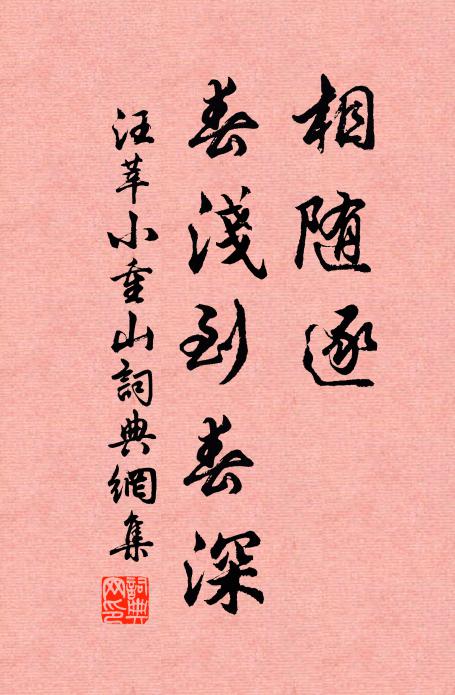 相随逐
春淺到春深
汪莘小重山詞典網集
詞典网印